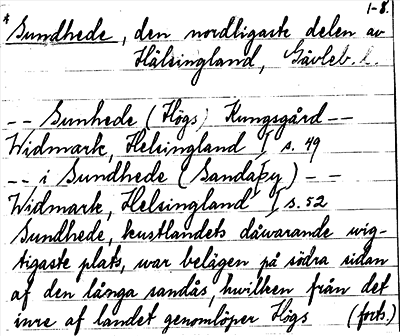 1-8.
* Sundhede, den nordligaste delen av
Hälsingland, Gävleb. l.
-- Sunhede (Högs) Kungsgård --
Widmark, Helsingland I s. 49
-- i Sundhede (Sandaþy) --
Widmark, Helsingland I s. 52
Sundhede, kustlandets dåwarande wig-
tigaste plats, war belägen på södra sidan
af den långa sandås, hwilken från det
inre af landet genomlöper Högs (forts.)